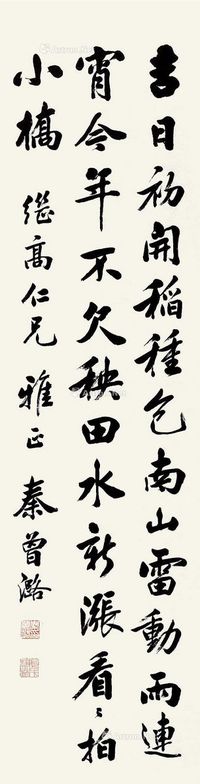 吉日初開稻種包南山雷動雨連
宵今年不欠秧田水新漲看〻拍
小橋 繼高仁兄 雅正 秦曾潞